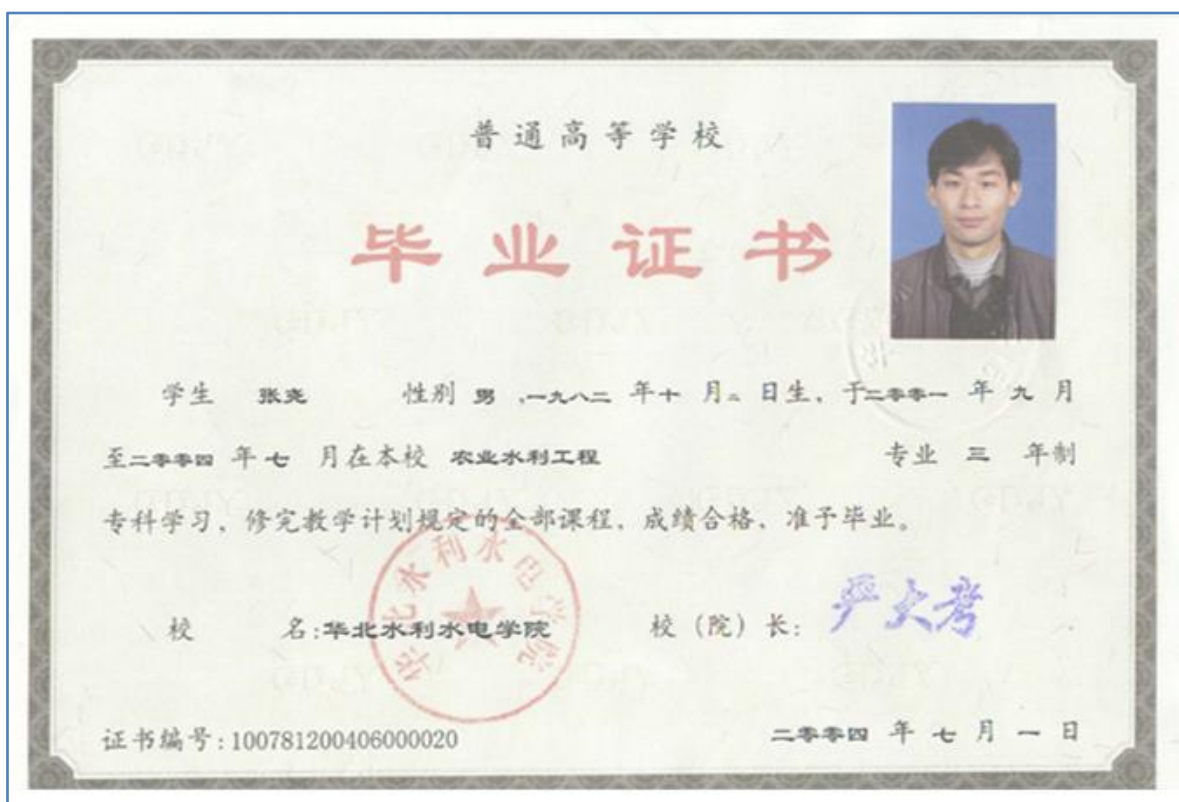 普通高等学校
毕业证书
学生 张尧 性别 男 ,一九八二 年十 月二 日生, 于二零零一 年 九 月
至二零零四 年 七 月在本校 农业水利工程 专业 三 年制
专科学习, 修完教学计划规定的全部课程, 成绩合格, 准予毕业。
校 名:华北水利水电学院 校(院)长: 严大考
华北水利水电学院
证书编号:100781200406000020 二零零四 年 七 月 一 日